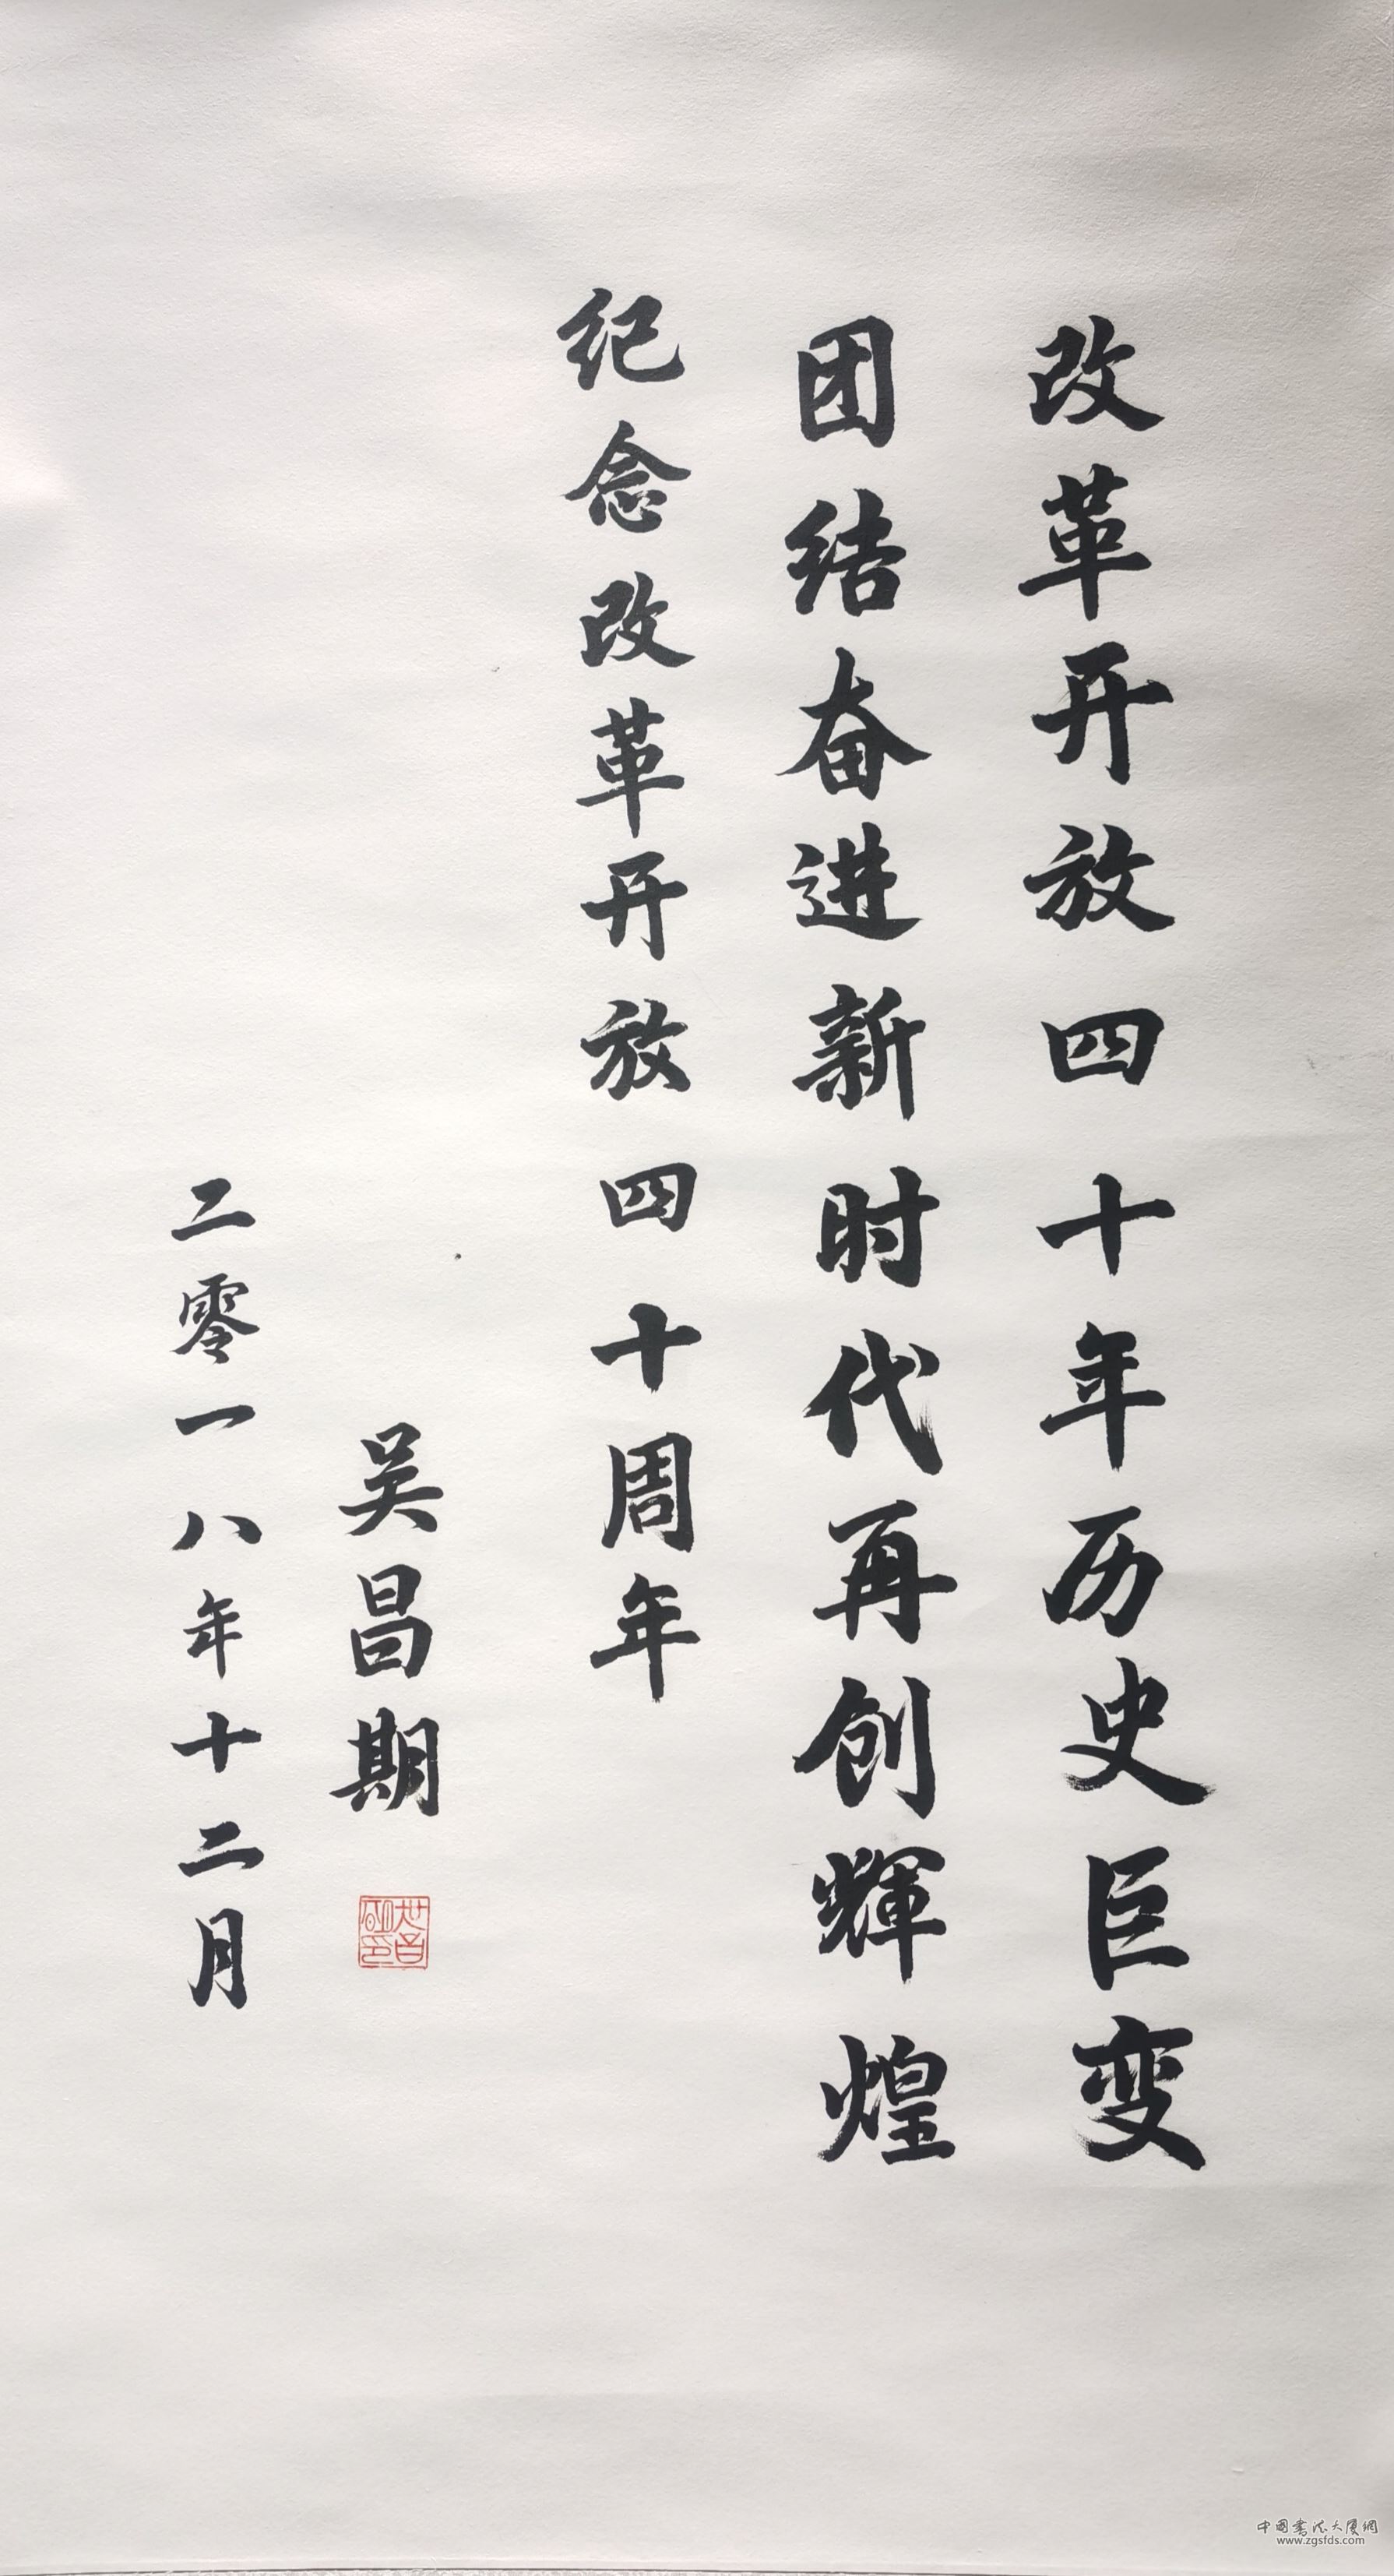 改革开放四十年历史巨变
团结奋进新时代再创輝煌
纪念改革开放四十周年
吴昌期
二零一八年十二月
中国书法大厦網
www.zgsfds.com